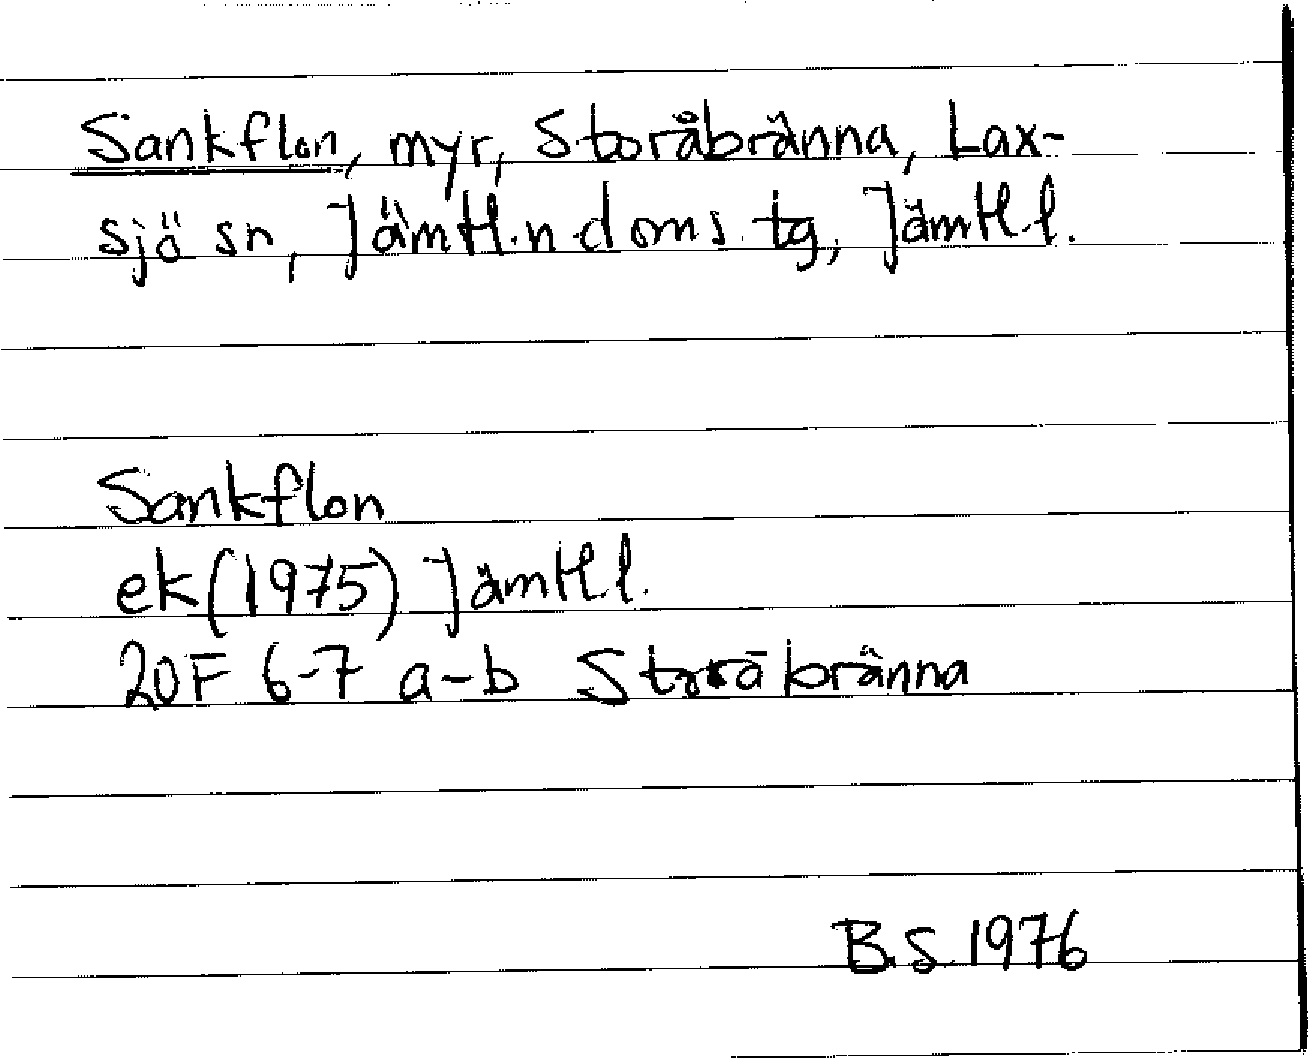 Sankflon, myr, Storåbränna, Lax-
sjö sn, Jämtl. n. doms. tg, Jämtl l.
Sankflon
ek (1975) Jämtl l.
20F 6-7 a-b Storåbränna
B.S. 1976